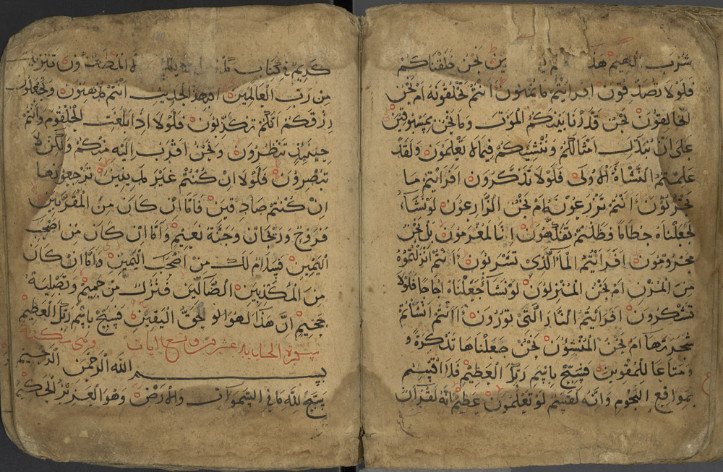 شرب الهيم هذا نحن خلقناكم
فلولا تصدقون افرايتم ما تمنون اانتم تخلقونه ام نحن
الخالقون نحن قدرنا بينكم الموت وما نحن بمسبوقين
على ان نبدل امثالكم وننشئكم فيما لا تعلمون ولقد
علمتم النشاة الاولى فلولا تذكرون افرايتم ما
تحرثون اانتم تزرعونه ام نحن الزارعون لو نشاء
لجعلناه حطاما فظلتم تفكهون انا لمغرمون بل نحن
محرومون افرايتم الماء الذي تشربون اانتم انزلتموه
من المزن ام نحن المنزلون لو نشا جعلناه اجاجا فلولا
تشكرون افرايتم النار التي تورون اانتم انشاتم
شجرتها ام نحن المنشؤن نحن جعلناها تذكرة و
ومتاعا للمقوين فسبح باسم ربك العظيم فلا اقسم
بمواقع النجوم وانه لقسم لو تعلمون عظيم انه لقرآن
كريم في كتاب المطهرون تنزيل
من رب العالمين افبهذا الحديث انتم مدهنون وتجعلون
رزقكم انكم تكذبون فلولا اذا بلغت الحلقوم وانتم
حينئذ تنظرون ونحن اقرب اليه منكم ولكن لا
تبصرون فلولا ان كنتم غير مدينين ترجعونها
ان كنتم صادقين فاما ان كان من المقربين
فروح وريحان وجنة نعيم واما ان كان من اصحب
اليمين فسلام لك من اصحب اليمين واما ان كان
من المكذبين الضالين فنزل من حميم وتصلية
جحيم ان هذا لهو حق اليقين فسبح باسم ربك العظيم
سورة الحديد عشرون وتسع ايات
بسم الله الرحمن الرحيم
سبح لله ما في السموات والارض وهو العزيز الحكيم